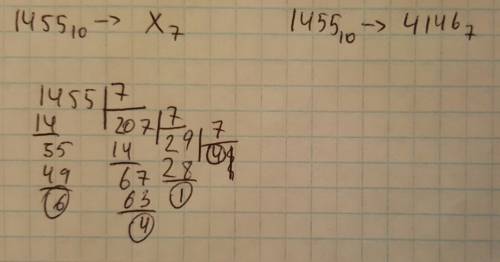 1455₁₀ → X₇ 1455₁₀ → 4146₇
1455 | 7
14 207 | 7
55 14 29 | 7
49 67 28 4
6 63 1
4